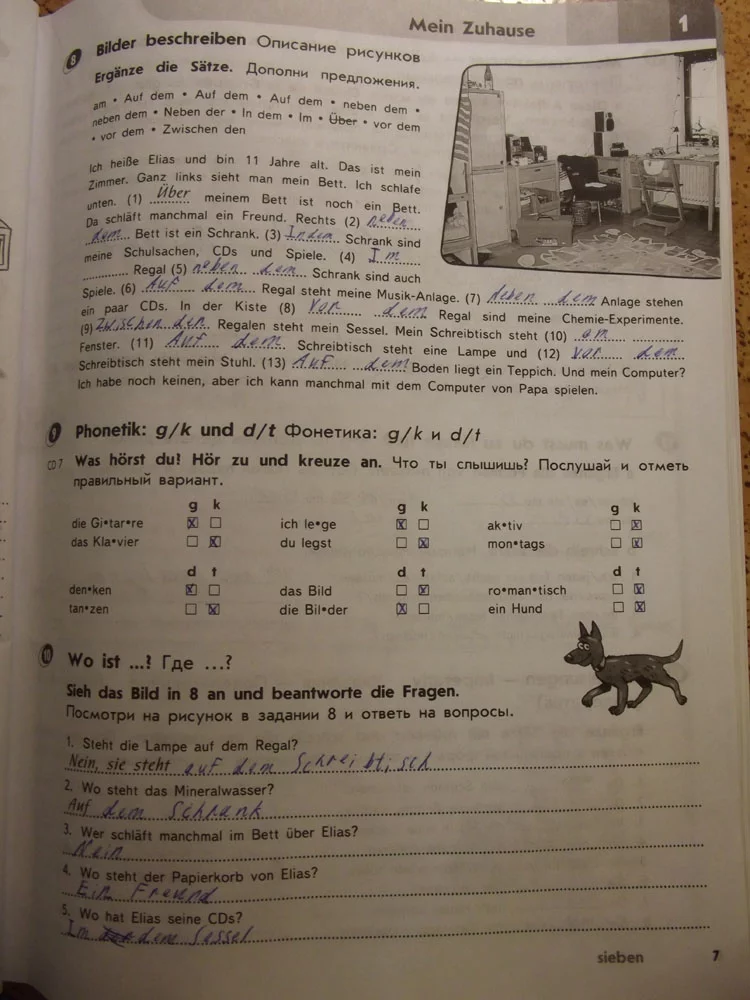 Mein Zuhause 1
8 Bilder beschreiben Описание рисунков
Ergänze die Sätze. Дополни предложения.
am • Auf dem • Auf dem • Auf dem • neben dem •
neben dem • Neben der • In dem • Im • Über • vor dem
• vor dem • Zwischen den
Ich heiße Elias und bin 11 Jahre alt. Das ist mein
Zimmer. Ganz links sieht man mein Bett. Ich schlafe
unten. (1) Über meinem Bett ist noch ein Bett.
Da schläft manchmal ein Freund. Rechts (2) neben
dem Bett ist ein Schrank. (3) In dem Schrank sind
meine Schulsachen, CDs und Spiele. (4) Im
Regal (5) neben dem Schrank sind auch
Spiele. (6) Auf dem Regal steht meine Musik-Anlage. (7) Neben dem Anlage stehen
ein paar CDs. In der Kiste (8) vor dem Regal sind meine Chemie-Experimente.
(9) Zwischen den Regalen steht mein Sessel. Mein Schreibtisch steht (10) am
Fenster. (11) Auf dem Schreibtisch steht eine Lampe und (12) vor dem
Schreibtisch steht mein Stuhl. (13) Auf dem Boden liegt ein Teppich. Und mein Computer?
Ich habe noch keinen, aber ich kann manchmal mit dem Computer von Papa spielen.
9 Phonetik: g/k und d/t Фонетика: g/k и d/t
CD 7 Was hörst du? Hör zu und kreuze an. Что ты слышишь? Послушай и отметь
правильный вариант.
g k g k g k
die Gi•tar•re ich le•ge ak•tiv
das Kla•vier du legst mon•tags
d t d t d t
den•ken das Bild ro•man•tisch
tan•zen die Bil•der ein Hund
10 Wo ist ...? Где ...?
Sieh das Bild in 8 an und beantworte die Fragen.
Посмотри на рисунок в задании 8 и ответь на вопросы.
1. Steht die Lampe auf dem Regal?
Nein, sie steht auf dem Schreibtisch
2. Wo steht das Mineralwasser?
Auf dem Schrank
3. Wer schläft manchmal im Bett über Elias?
Nein
4. Wo steht der Papierkorb von Elias?
Ein Freund
5. Wo hat Elias seine CDs?
Im dem Sessel
sieben 7